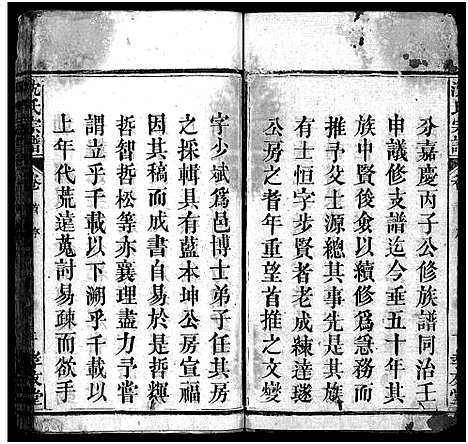 分嘉慶丙子公修族譜同治壬
申議修支譜迄今垂五十年其
族中賢後僉以續修爲急務而
推予爻士源總其事先是其族
有士恒字步賢者老成練達遂
公房之者年重望首推之文變
字少斌爲邑博士弟子任其房
之採輯具有藍本坤公房宣福
因其稿而成書自易於是哲輿
哲智哲松等亦襄理盡力予嘗
謂立乎千載以下溯乎千載以
上年代荒遠蒐討易疎而欲手
沈氏宗譜
卷首